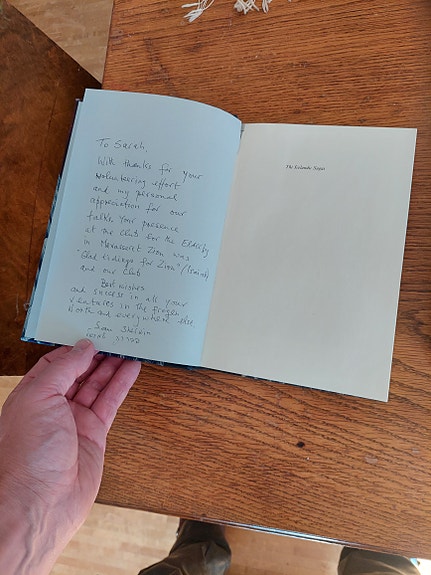 To Sarah,
With thanks for your
volunteering effort
and my personal
appreciation for our
talks. Your presence
at our club for the Elderly
in Mevasseret Zion was
"Glad tidings for Zion" (Isaiah)
and our club.
Best wishes
and success in all your
ventures in the frozen
North and everywhere else.
The Icelandic Sagas